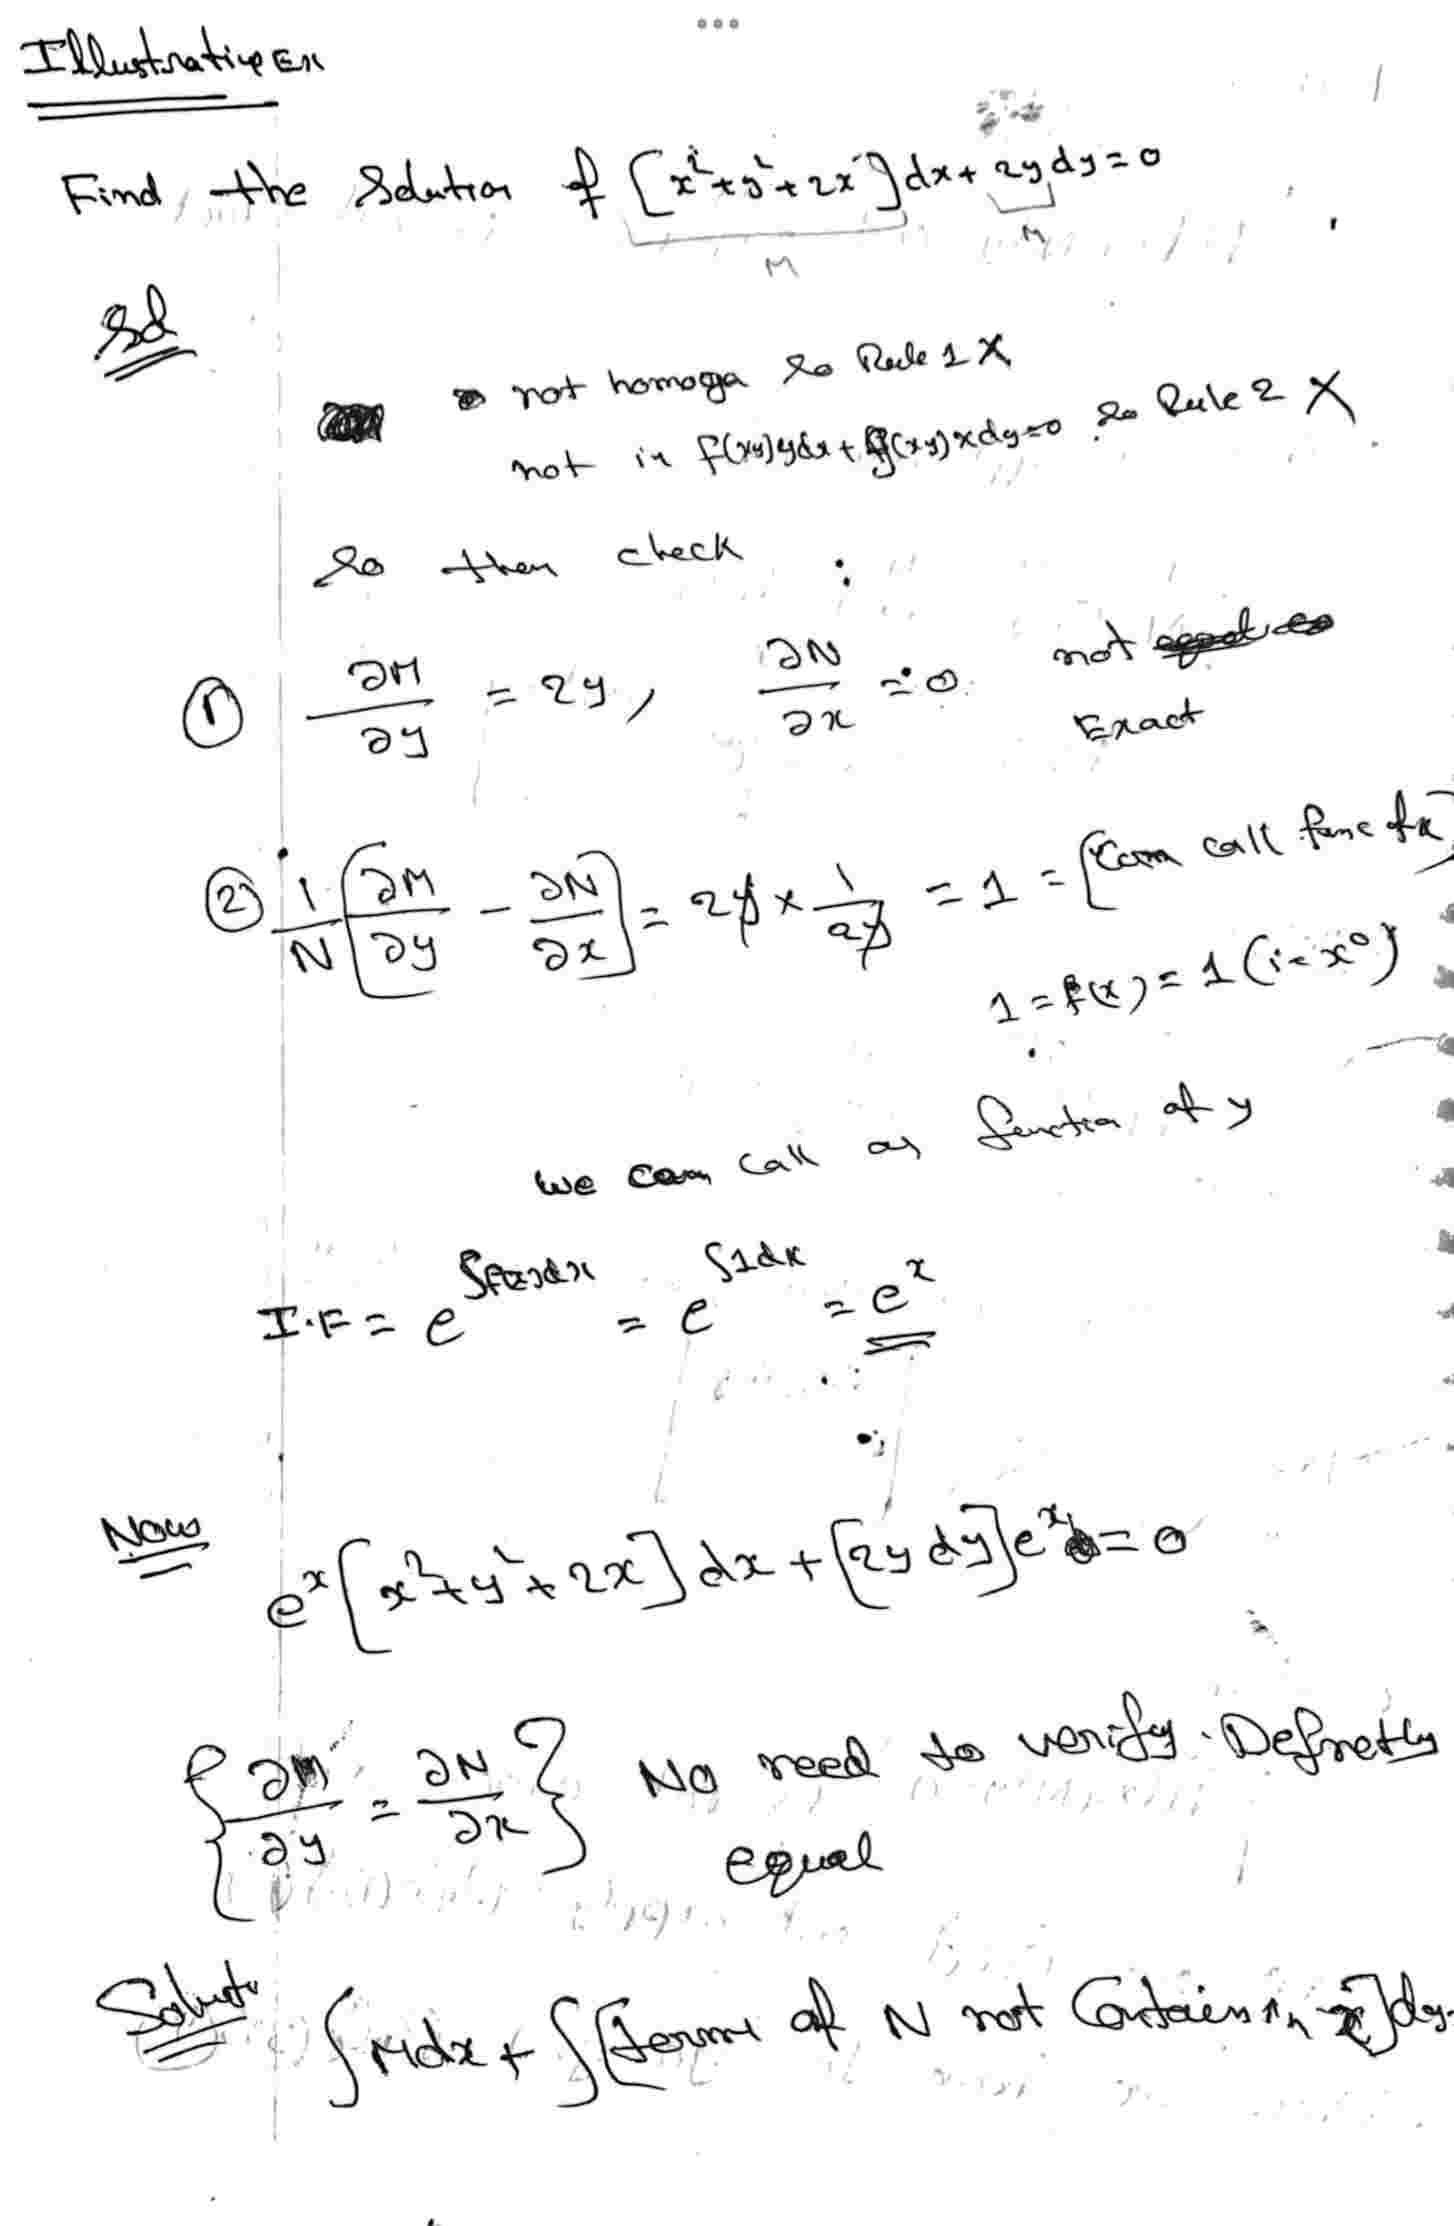 Illustrative Ex
Find the Solution of [x²+y²+2x]dx+2ydy=0
M M
Sol
not homoga So Rule 1 X
not in f(xy)ydx+g(xy)xdy=0 So Rule 2 X
So then check :
① ∂M/∂y = 2y, ∂N/∂x = 0 not
Exact
② 1/N [∂M/∂y - ∂N/∂x] = 2y × 1/2y = 1 = [Can call func of x]
1 = f(x) = 1 (i.e x⁰)
we can call as function of y
I.F = e^∫f(x)dx = e^∫1dx = e^x
Now
e^x [x²+y²+2x] dx + [2y dy]e^x = 0
{∂M/∂y = ∂N/∂x} No need to verify. Defnetly
equal
Solut
∫Mdx + ∫[term of N not Contain x]dy